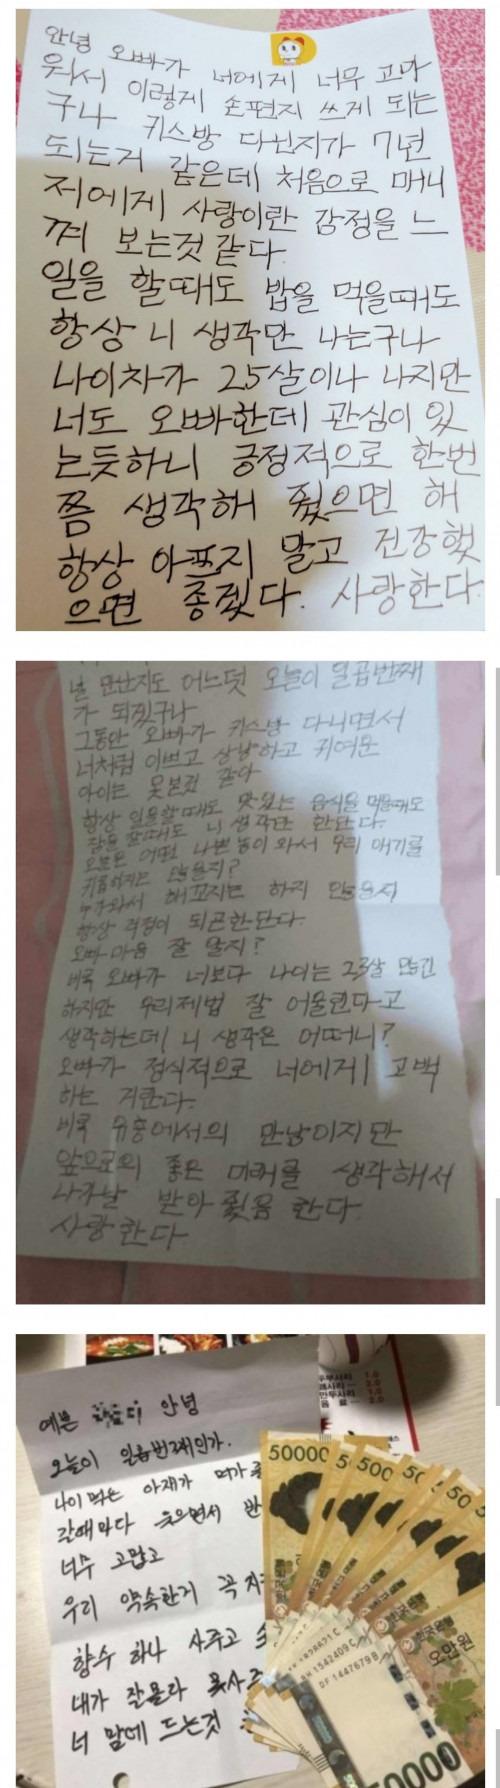 안녕 오빠가 너에게 너무 고마
워서 이렇게 손편지 쓰게 되는
구나 키스방 다닌지가 7년
되는거 같은데 처음으로 매니
저에게 사랑이란 감정을 느
껴 보는것 같다
일을 할때도 밥을 먹을때도
항상 니 생각만 나는구나
나이차가 25살이나 나지만
너도 오빠한데 관심이 있
는듯하니 긍정적으로 한번
쯤 생각해 줬으면 해
항상 아프지 말고 건강했
으면 좋겠다. 사랑한다
널 만난지도 어느덧 오늘이 일곱번째
가 되겠구나
그동안 오빠가 키스방 다니면서
너처럼 이쁘고 상냥하고 귀여운
아이는 못본것 같다
항상 일을할때도 맛있는 음식을 먹을때도
잠을 잘때도 니 생각만 한단다.
오늘은 어떤 나쁜놈이 와서 우리 애기를
않을지?
와서 해꼬지는 하지 않을지
항상 걱정이 되곤한단다.
오빠 마음 잘 알지?
비록 오빠가 너보다 나이는 23살 많긴
하지만 우리제법 잘 어울린다고
생각하는데 니 생각은 어떠니?
오빠가 정식적으로 너에게 고백
하는 거란다.
비록 유흥에서의 만남이지만
앞으로의 좋은 미래를 생각해서
받아 줬음 한다
사랑한다
예쁜 안녕
오늘이 일곱번째인가.
나이 먹은 아재가 뭐가 좋
갈때마다 웃으면서 반
너무 고맙고
우리 약속한거 꼭 지
향수 하나 사주고
내가 잘몰라 못사주
너 맘에 드는것
두부사리 1.0
2.0
만두사리 1.0
음 료 2.0
50000
한국은행
오만원
1542409 C
DF 1447679 B
0000